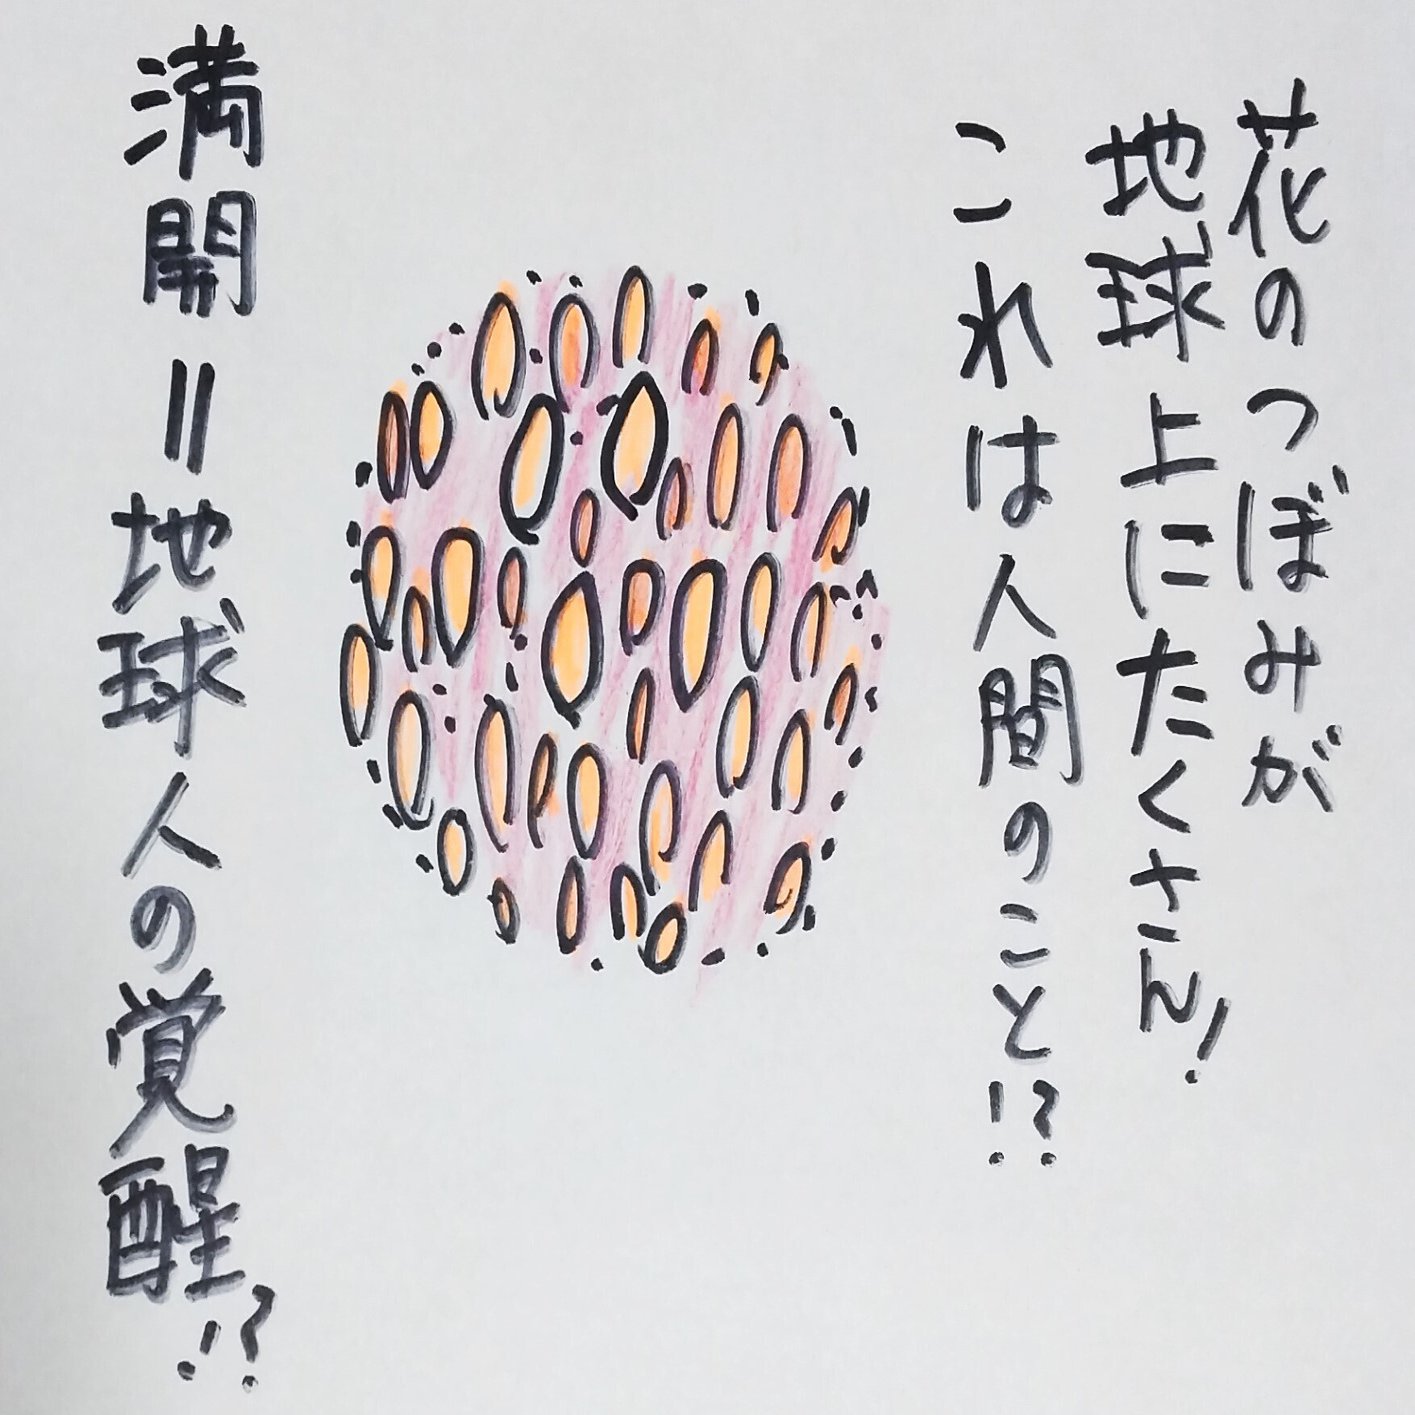 花のつぼみが
地球上にたくさん!
これは人間のこと!?
満開=地球人の覚醒!?